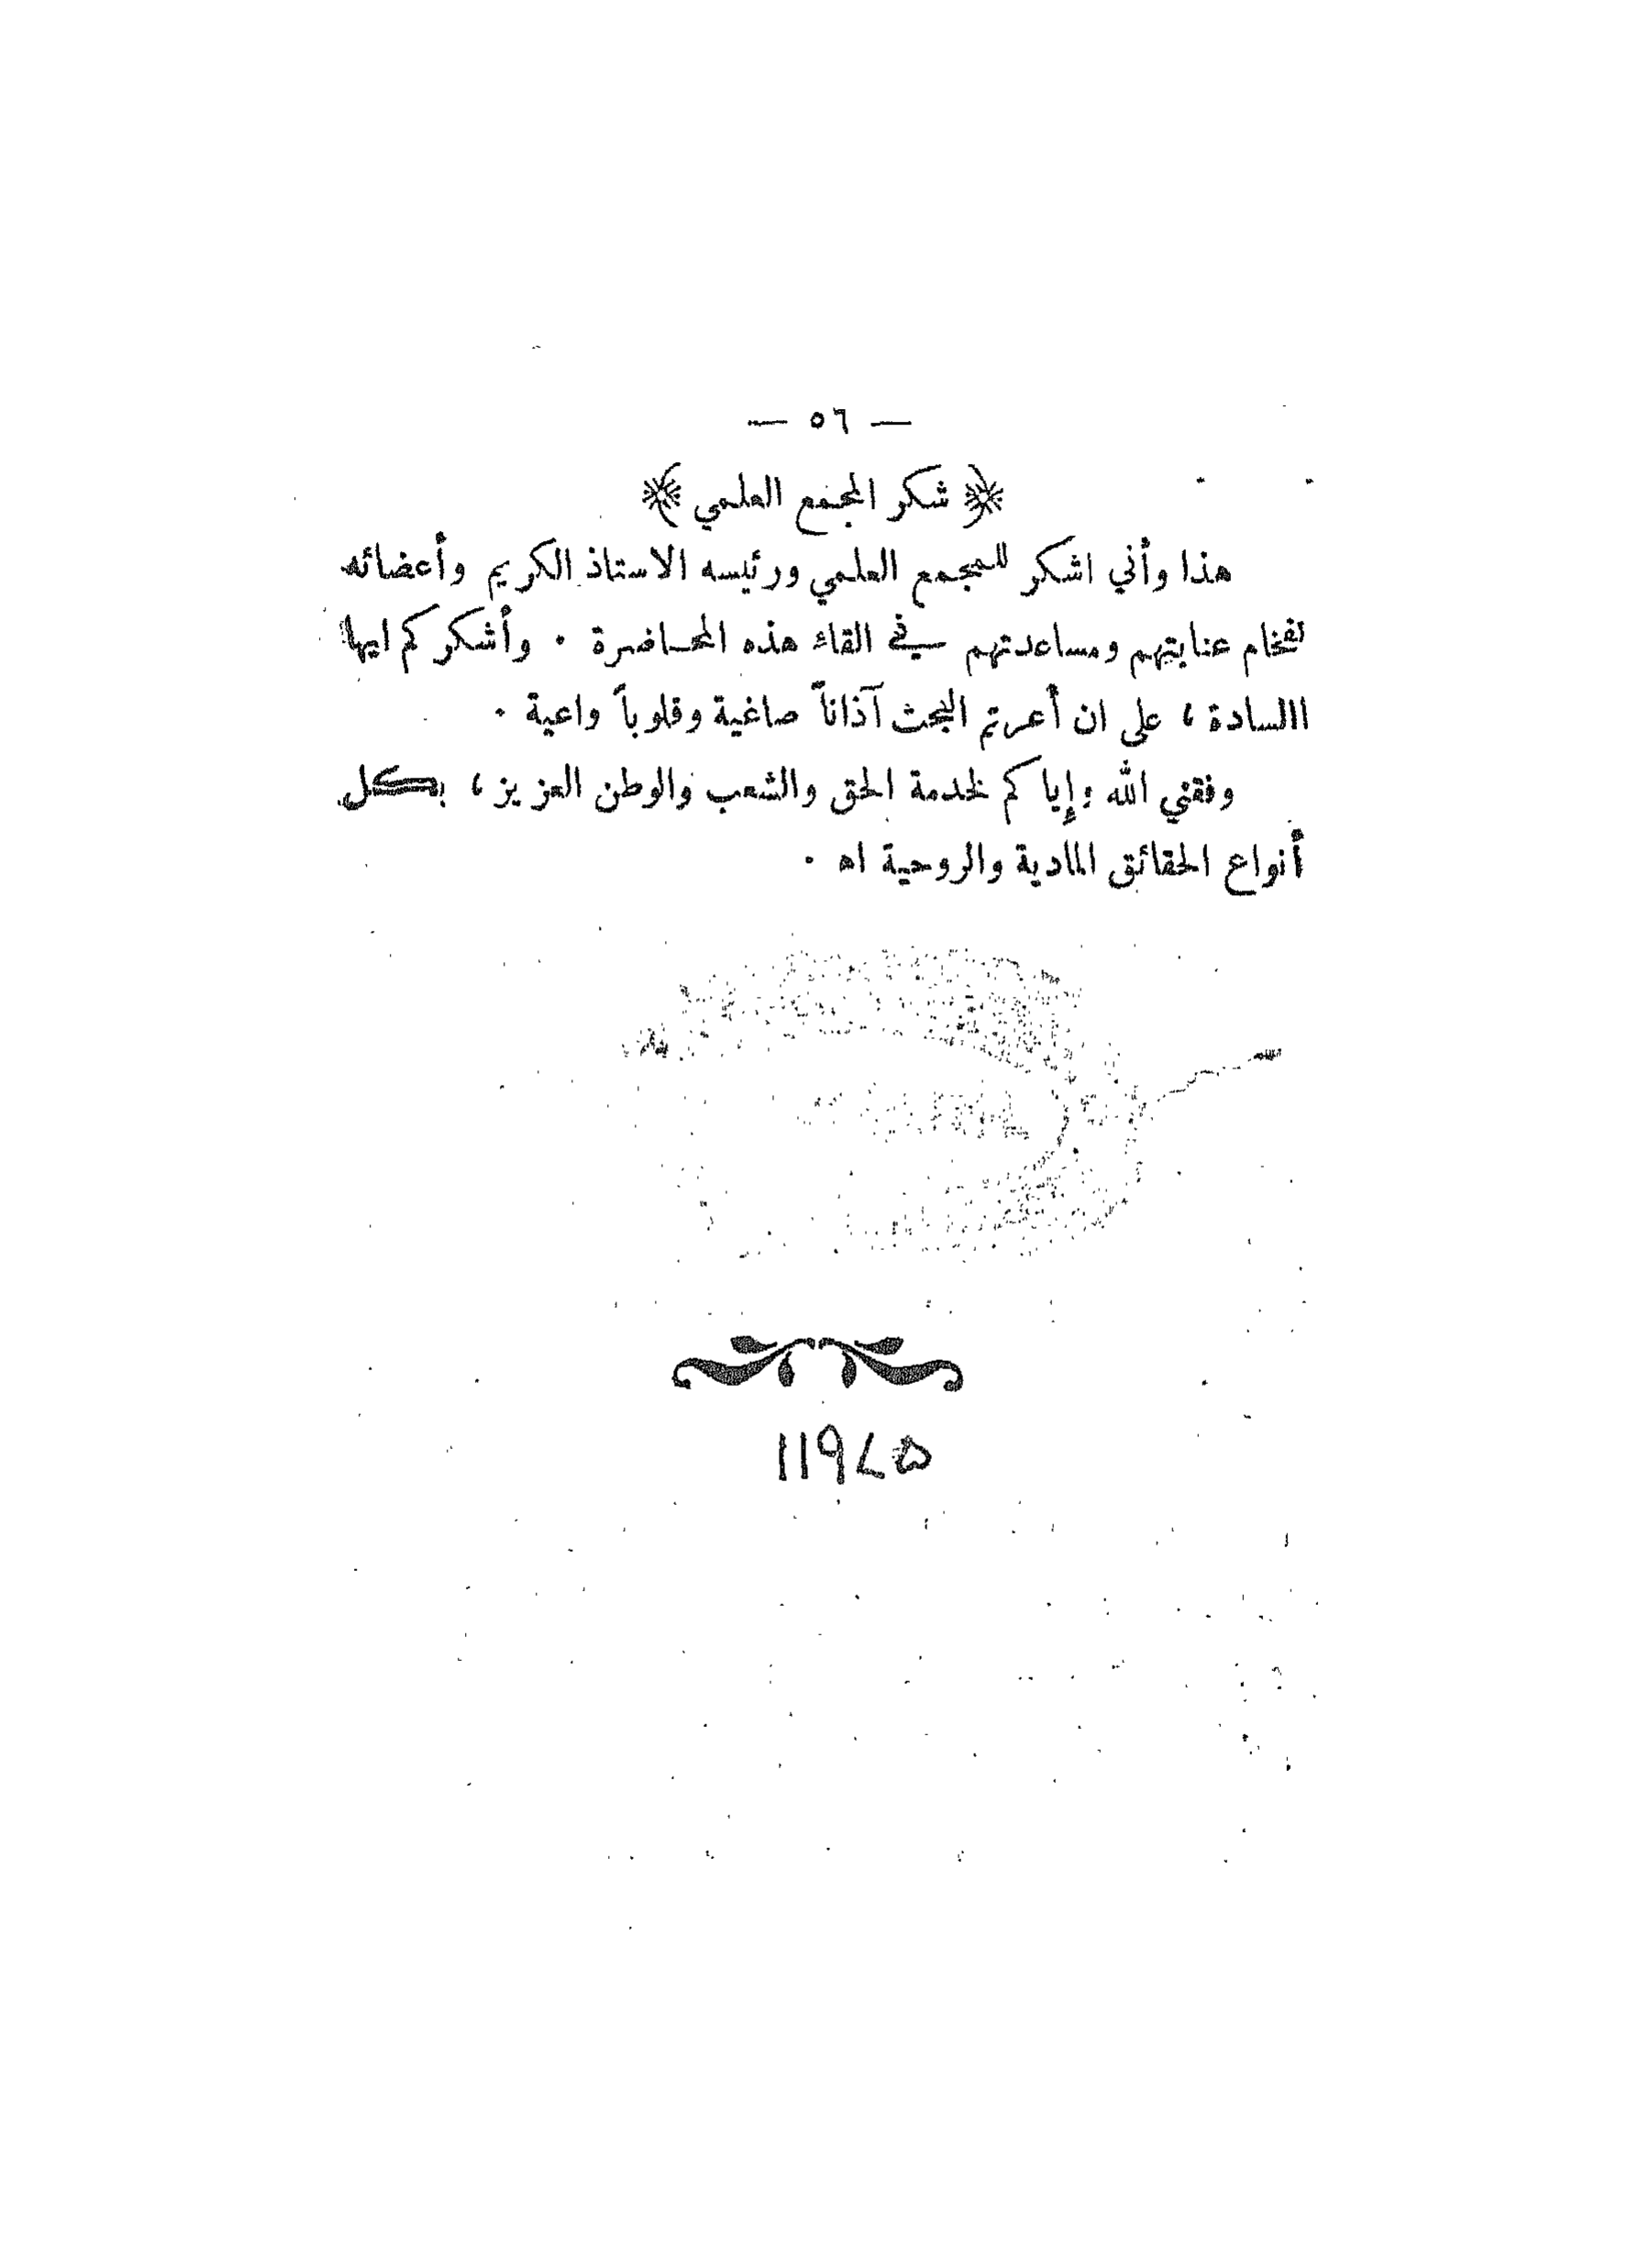 — ٥٦ —
﴿ شكر المجمع العلمي ﴾
هذا وأني اشكر للمجمع العلمي ورئيسه الاستاذ الكريم وأعضائه
لفخام عنايتهم ومساعدتهم في القاء هذه المحاضرة . وأشكركم ايها
االسادة ، على ان أعرتم البحث آذاناً صاغية وقلوباً واعية .
وفقني الله وإياكم لخدمة الحق والشعب والوطن العزيز ، بكل
أنواع الحقائق المادية والروحية اه .